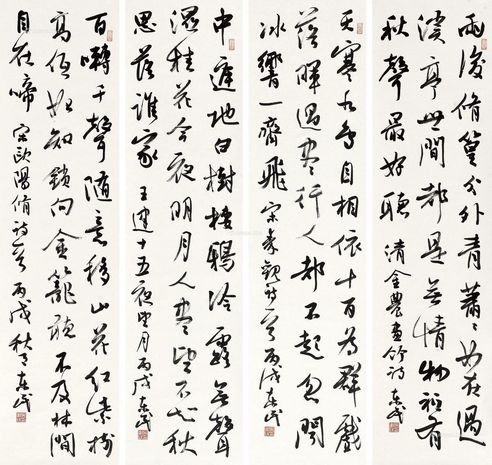 雨後脩篁分外青蕭蕭如在過
溪亭世間都是無情物祗有
秋聲最好聽 清金農畫竹詩
天寒水鳥自相依十百為群戲
落暉過盡行人都不起忽聞
冰響一齊飛 宋秦觀詩一首 丙戌
中庭地白樹棲鴉冷露無聲
濕桂花今夜明月人盡望不知秋
思落誰家 王建十五夜望月 丙戌
百囀千聲隨意移山花紅紫樹
高低始知鎖向金籠聽不及林間
自在啼 宋歐陽脩詩一首 丙戌秋